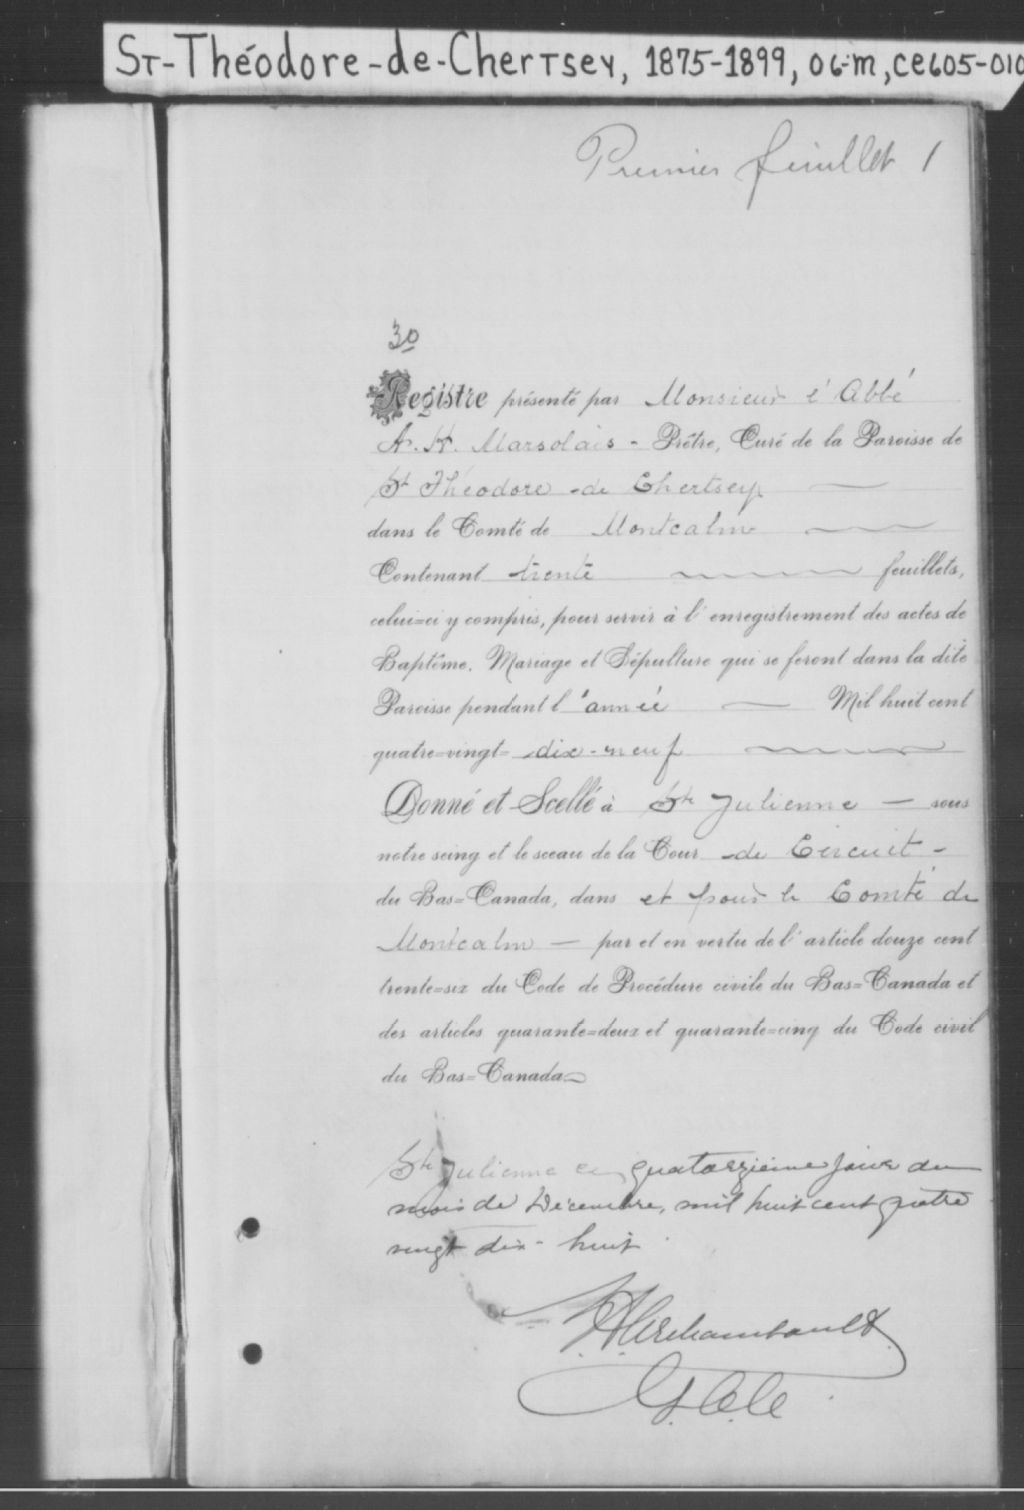 St-Théodore-de-Chertsey, 1875-1899, 06-m, CE605-010
Premier feuillet 1
30
Registre présenté par Monsieur l'Abbé
A. H. Marsolais - Prêtre, Curé de la Paroisse de
St Théodore de Chertsey
dans le Comté de Montcalm
Contenant trente feuillets,
celui-ci y compris, pour servir à l'enregistrement des actes de
Baptême, Mariage et Sépulture qui se feront dans la dite
Paroisse pendant l'année Mil huit cent
quatre-vingt-dix-neuf
Donné et Scellé à Ste Julienne — sous
notre seing et le sceau de la Cour de Circuit -
du Bas-Canada, dans et pour le Comté de
Montcalm — par et en vertu de l'article douze cent
trente-six du Code de Procédure civile du Bas-Canada et
des articles quarante-deux et quarante-cinq du Code civil
du Bas-Canada
Ste Julienne ce quatorzième jour du
mois de Décembre, mil huit cent quatre
vingt dix-huit
Archambault
G.C.C.